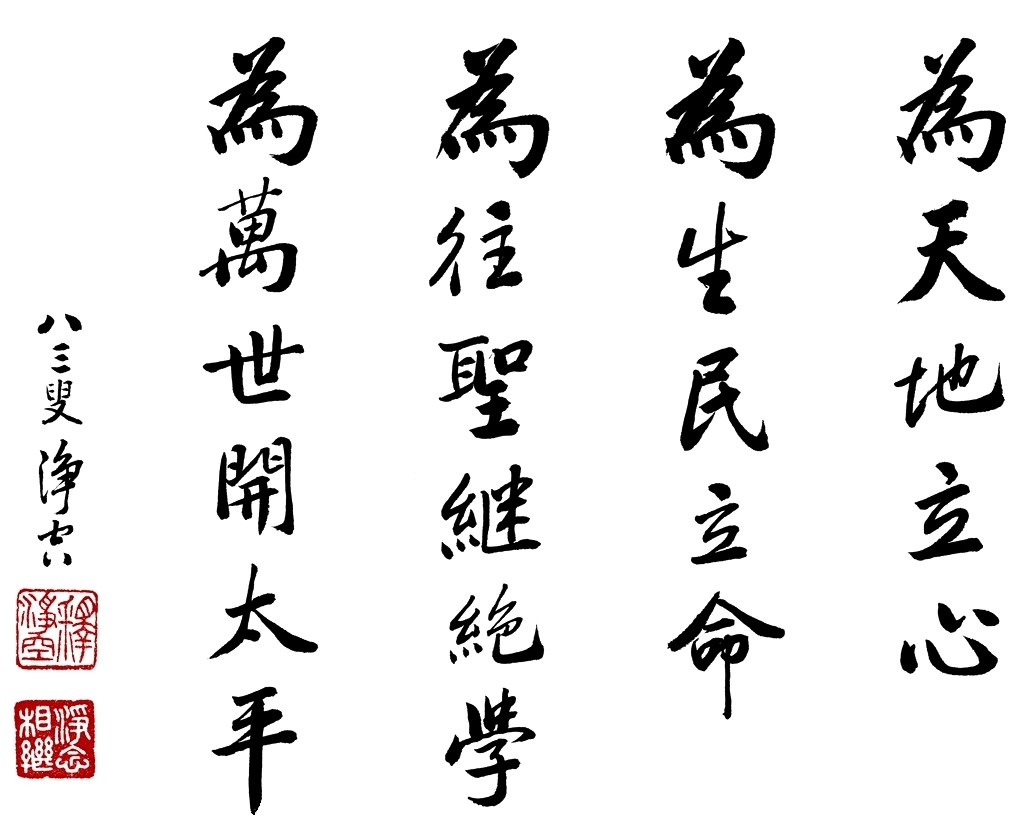 為天地立心
為生民立命
為往聖継絶學
為萬世開太平
八三叟淨空
釋淨空
淨念相繼